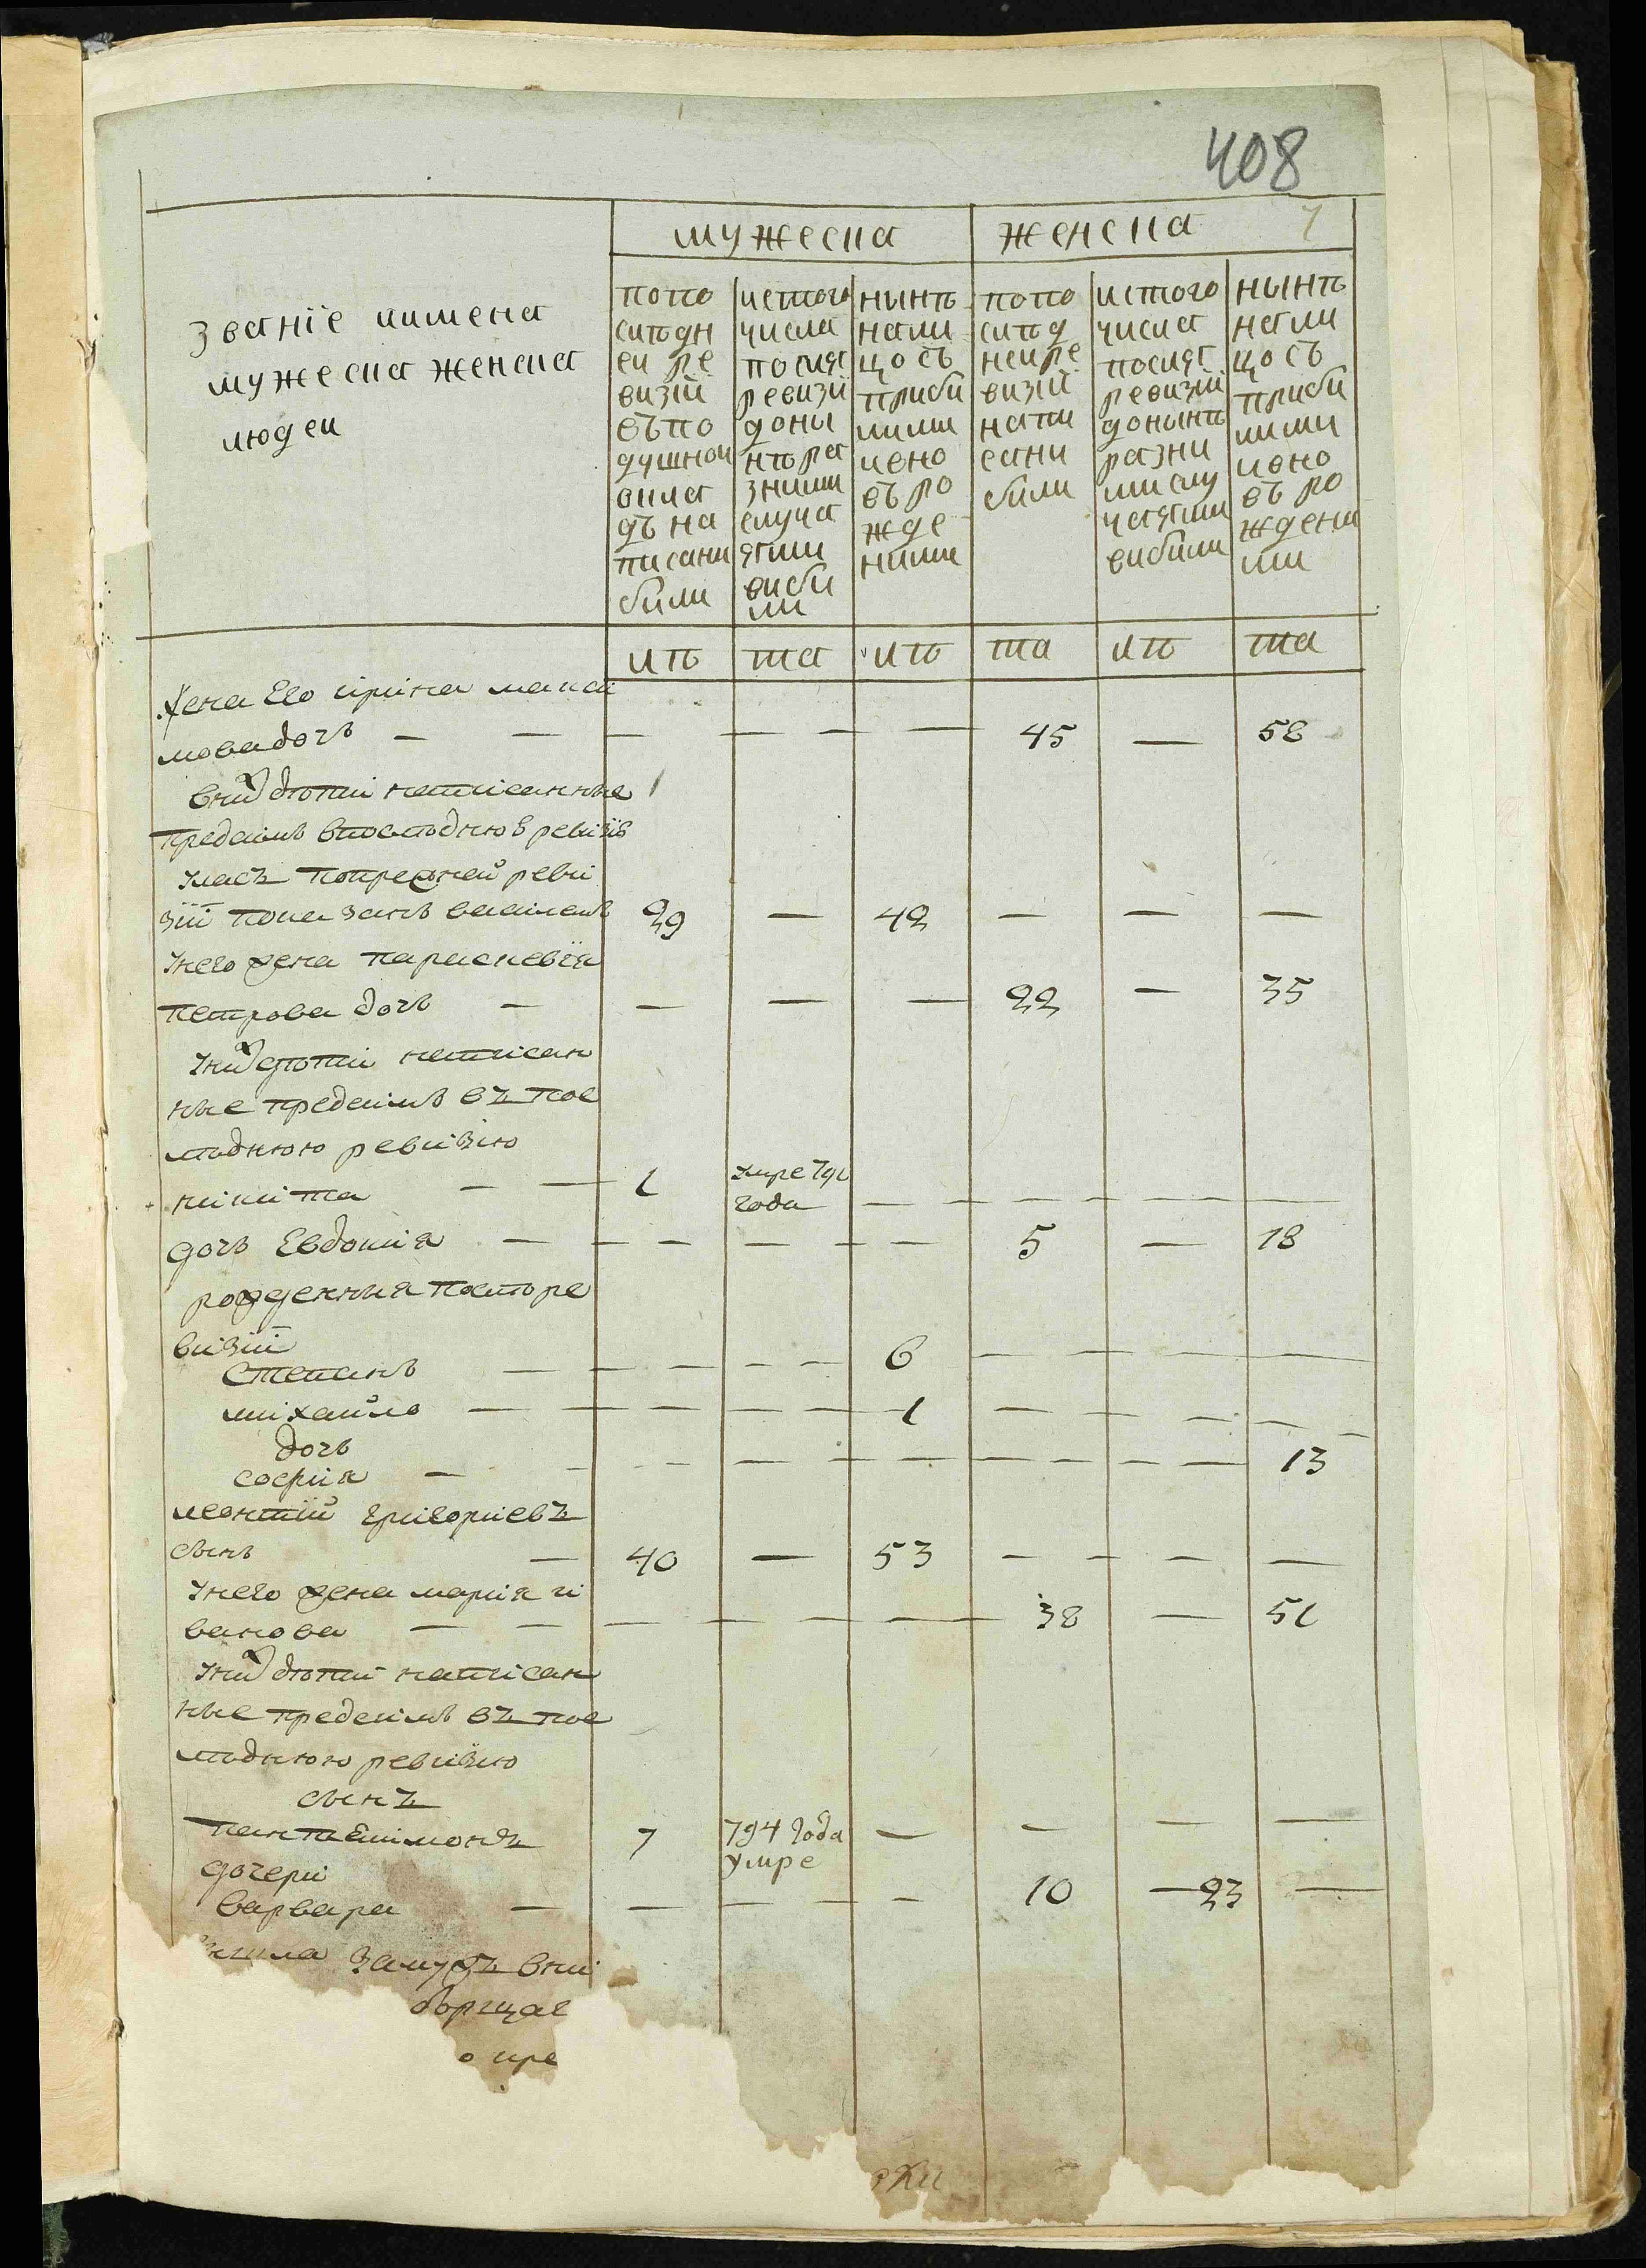 408
7
мужеска
женска
Званїе иимена
мужеска женска
людеи
попо
слѣдн
еи ре
визїи
въпо
душнои
окла
дъ на
писани
били
истого
числа
посля
ревизїи
доны
нѣ ра
зними
случа
ями
виби
ли
нынѣ
нали
цо съ
приби
лими
ивно
въ ро
жде
ними
попо
слѣд
неире
визїи
напи
сани
били
истого
числа
посля
ревизїи
донынѣ
разни
ми слу
чаями
вибили
нынѣ
нали
цо съ
приби
лими
ивно
въ ро
ждени
ми
лѣ та лѣ та лѣ та
Жена Его ирина макси
мова дочь — — — — — — 45 — 58
вних дѣти написанные
предсимъ впослѣднюю ревизїю
Класъ попрежней реви
зїи показанъ василемъ 29 — 42 — — —
Унего жена параскевїя
петрова дочь — — — — 22 — 35
Уних дѣти написан
ные предсимъ въ пос
лѣднюю ревизїю
никита — — 1 умре 791
года — — — — — —
дочь Евдокия — — — — — — 5 — 18
рожденныя послѣ ре
визїи
Степанъ — — — — — 6 — — — —
михайло — — — — — 1 — — — — —
дочь
софия — — — — — — — — — — — 13
леонтїй григориевъ
сынъ — 40 — 53 — — — —
Унего жена мария и
ванова — — — — — — 38 — 51
Уних дѣти написан
ные предсимъ въ пос
лѣднюю ревизїю
сынъ
пантелимонъ 7 794 года
умре — — — —
дочери
варвара — — — — — 10 — 23 —
замужъ вни
борщае
о пре